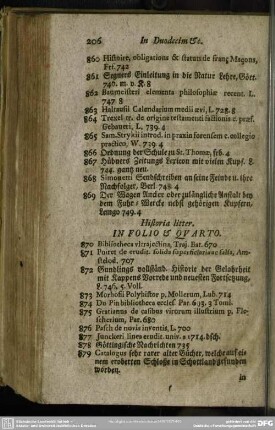 206 In Duodecim &c.
860 Histoire, obligations & statuts de franç Maçons,
Frf. 742
861 Segners Einleitung in die Natur Lehre, Gött.
746. m. v. K. 8
862 Baumeisteri elementa philosophiæ recent. L.
747. 8
863 Haltausii Calendarium medii ævi, L. 728. 8
864 origine testamenti factionis c. præf.
Gebaueri, L. 739. 4
865 Sam. Strykii introd. in praxin forensem c. collegio
practico, W. 739. 4
866 Ordnung der Schule zu St. Thomæ, 4
867 Hübners Zeitungs Lexicon mit vielen Kupf. 8.
724. ganz neu.
868 Simonetti Sendschreiben an seine Feinde u. ihre
Nachfolger, Berl 748. 4
869 Der Wagen Ander oder zulängliche Anstalt bey
dem Fuhr-Wercke nebst gehörigen Kupfern,
Lemgo 749. 4
Historia litter.
IN FOLIO & QVARTO.
870 Bibliotheca ultrajectina, Traj. Bat. 670
871 Poiret de erudit. solida superficiaria & falsa, Am-
stelod. 707
872 Gundlings vollständ. Historie der Gelahrheit
mit Vorrede und neuesten Fortsetzung,
F. 746, 5. Voll.
873 Morhofii Polyhistor p. Mollerum, Lub. 714
874 Du Pin bibliotheca eccles. Par. 693. 3 Tomi.
875 Gratianus de casibus virorum illustrium p. Fle-
chierium, Par. 680
876 Pasch de novis inventis, L. 700
877 Junckeri lineæ erudit. univ. 1714. dsch.
878 Göttingische Nachrichten 735
879 Catalogus sehr rarer alter Bücher, welche auf ei-
nem eroberten Schlosse in Schottland gefunden
worden.
in